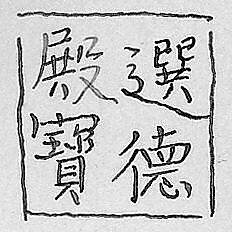 選德
殿寶